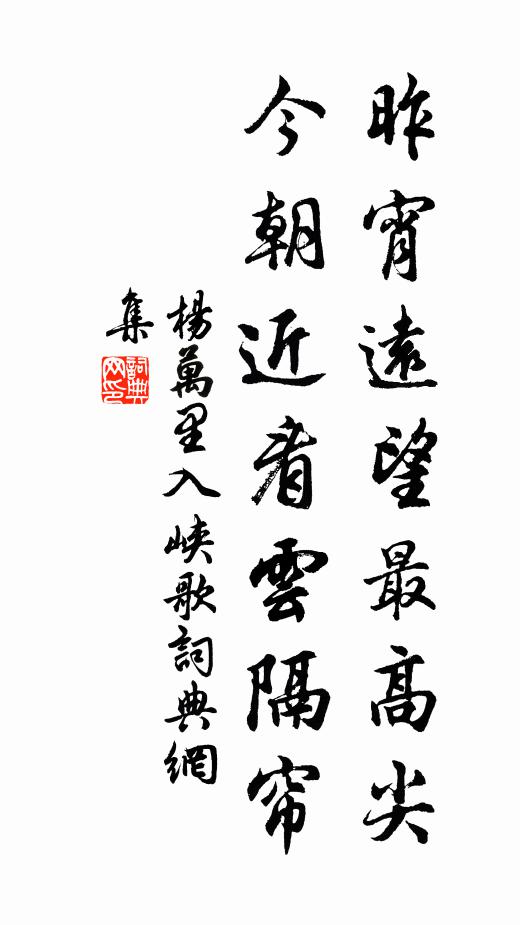 昨宵遠望最高尖
今朝近看雲隔帘
楊萬里入峽歌詞典網
集
詞典
网印